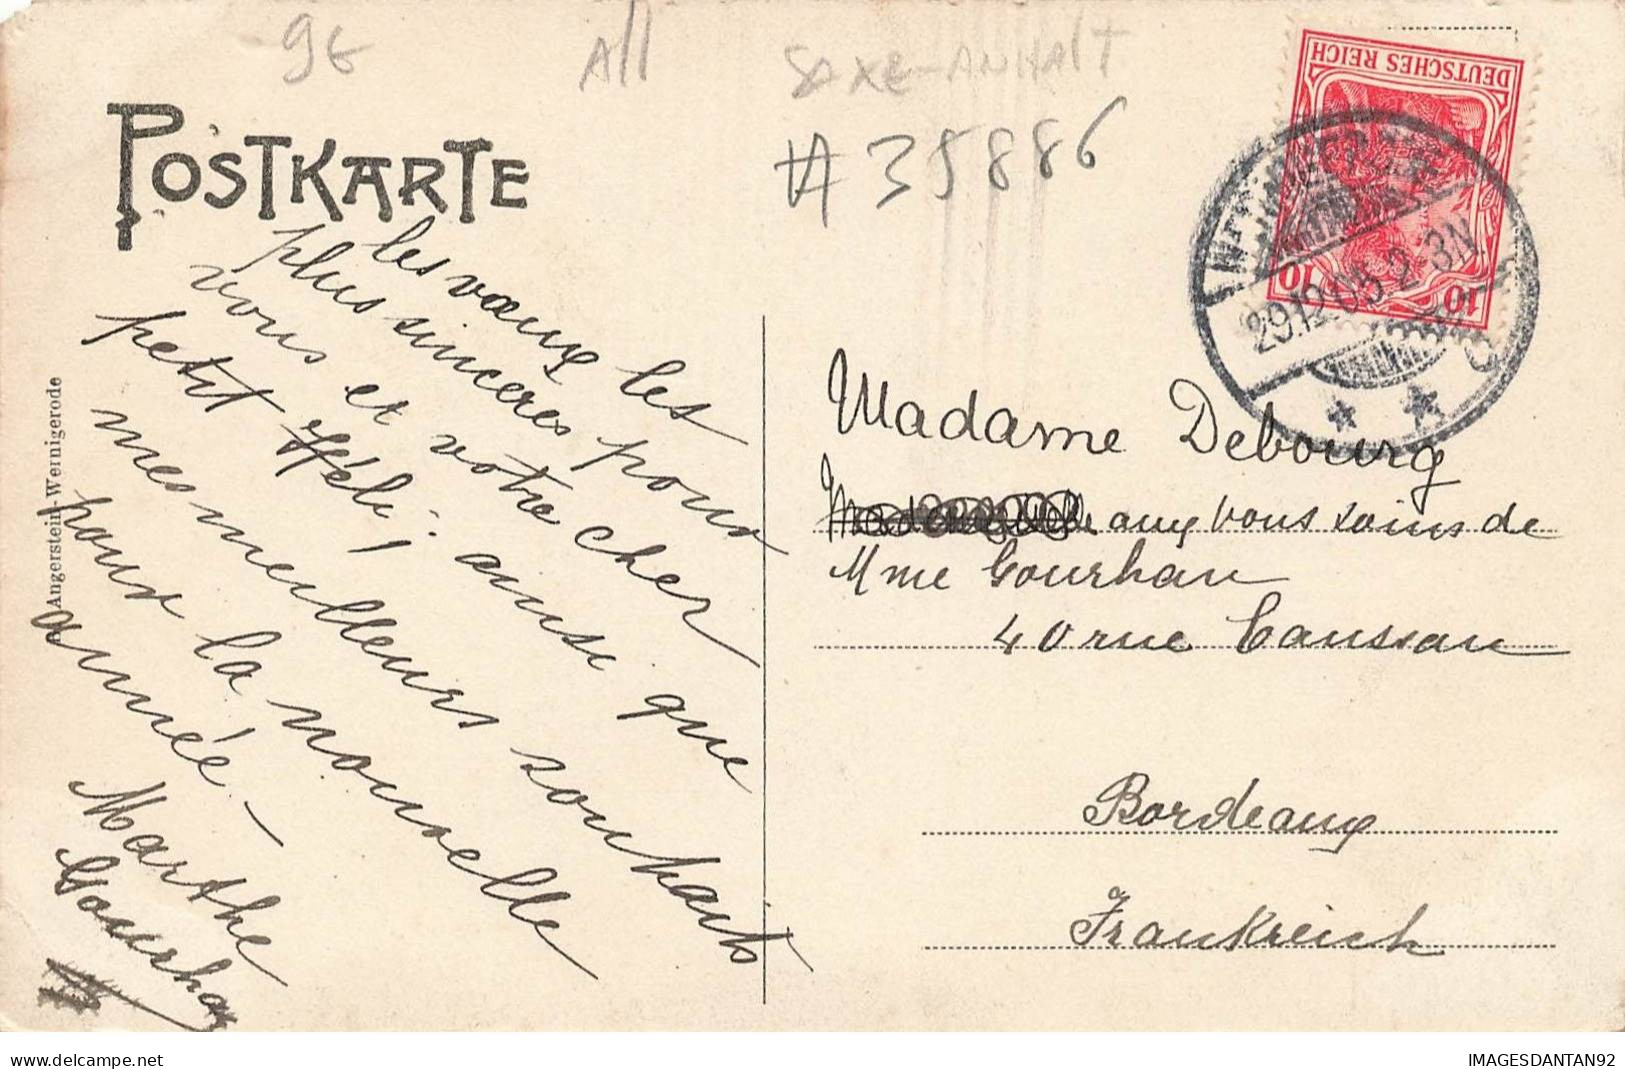 9€
All
SAXE-ANHALT
#35886
DEUTSCHES REICH
10 10
29.12.05.2-3N
POSTKARTE
les vœux les
plus sincères pour
vous et votre cher
petit Héli; ainsi que
mes meilleurs souhaits
pour la nouvelle
année -
Marthe
Gourhan
Angerstein-Wernigerode
Madame Debourg
aux bons soins de
Mme Gourhan
40 rue Caussan
Bordeaux
Frankreich
delcampe.net
IMAGESDANTAN92